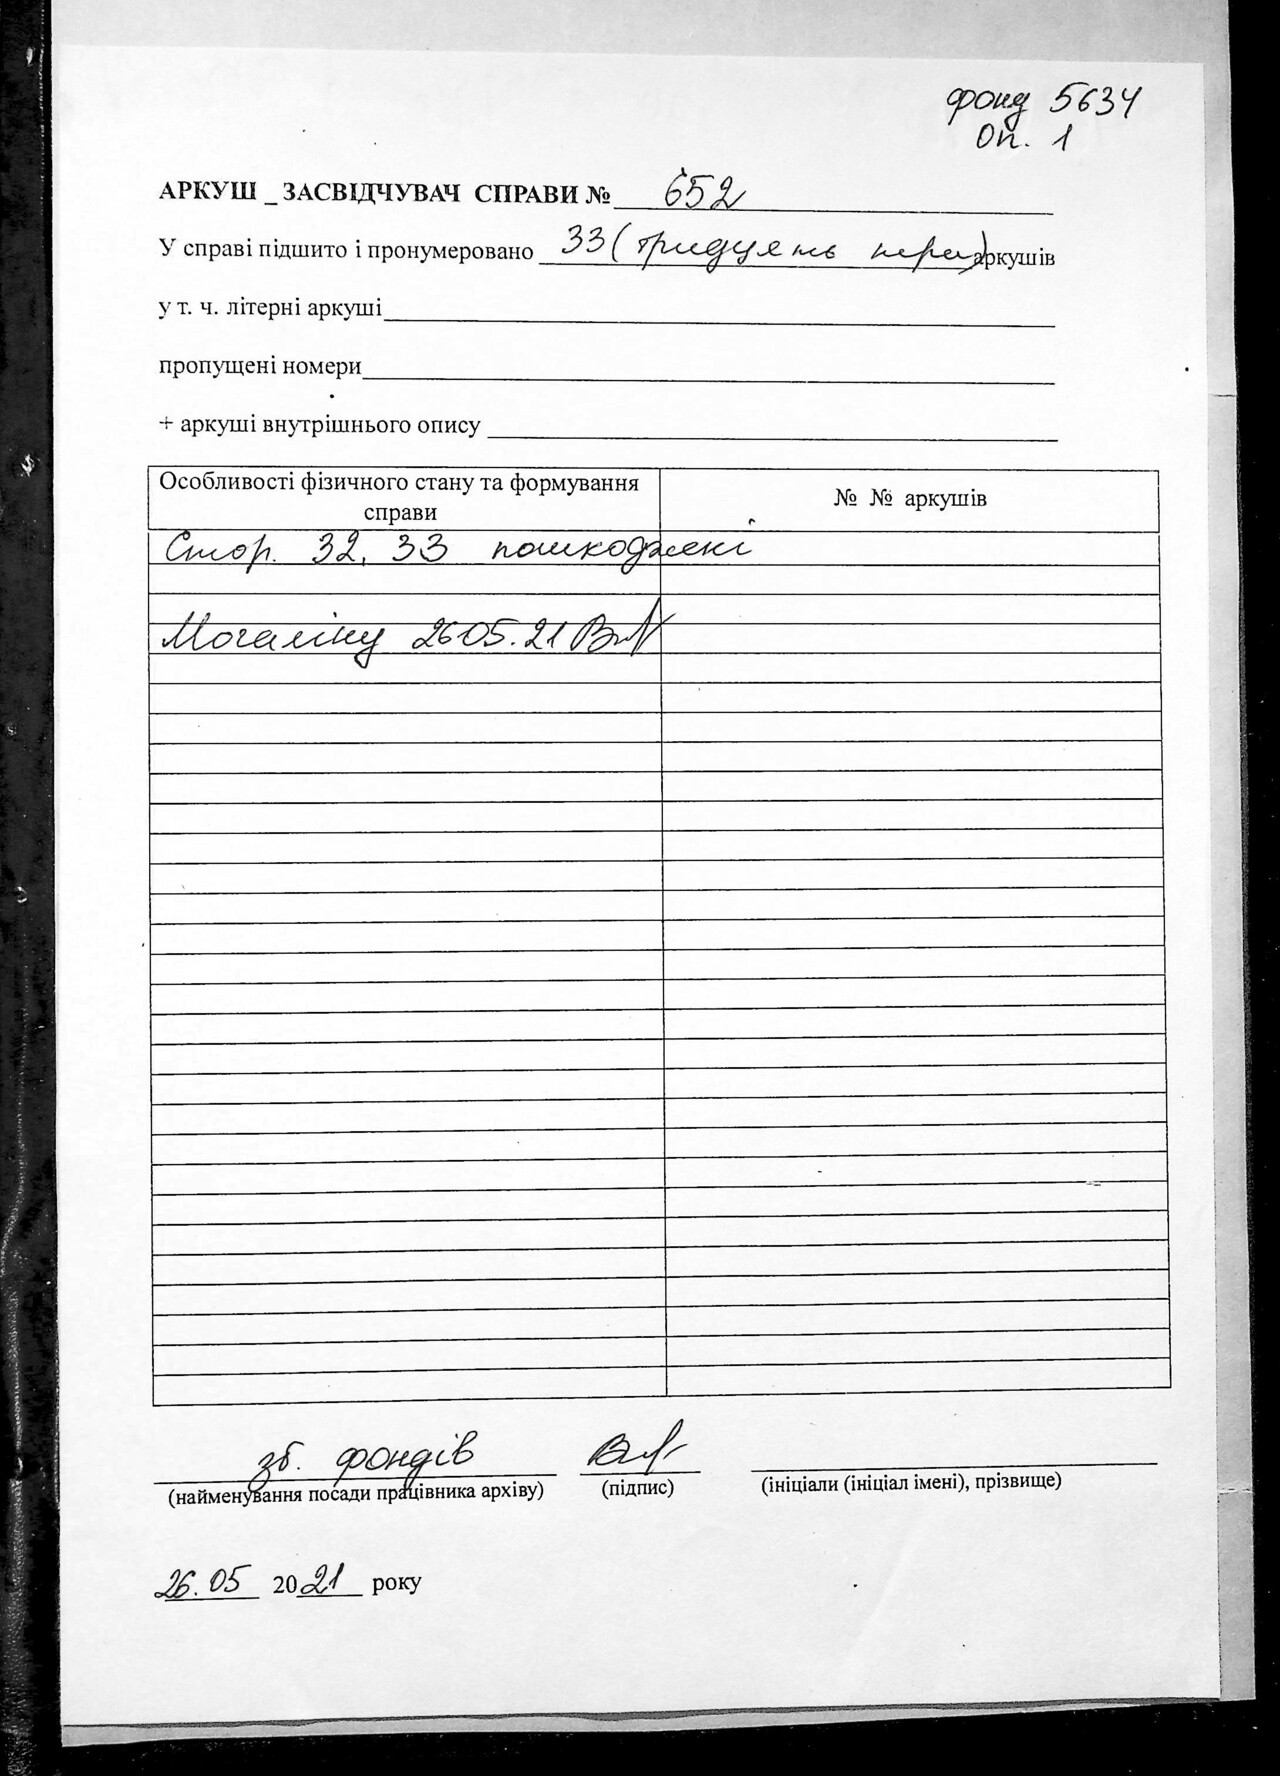 фонд 5634
Оп. 1
АРКУШ _ ЗАСВІДЧУВАЧ СПРАВИ № 652
У справі підшито і пронумеровано 33 (тридцять три) аркушів
у т. ч. літерні аркуші
пропущені номери
+ аркуші внутрішнього опису
Особливості фізичного стану та формування справи
№ № аркушів
Стор. 32, 33 пошкоджені
26.05.21
зб. фондів
(найменування посади працівника архіву) (підпис) (ініціали (ініціал імені), прізвище)
26.05 2021 року